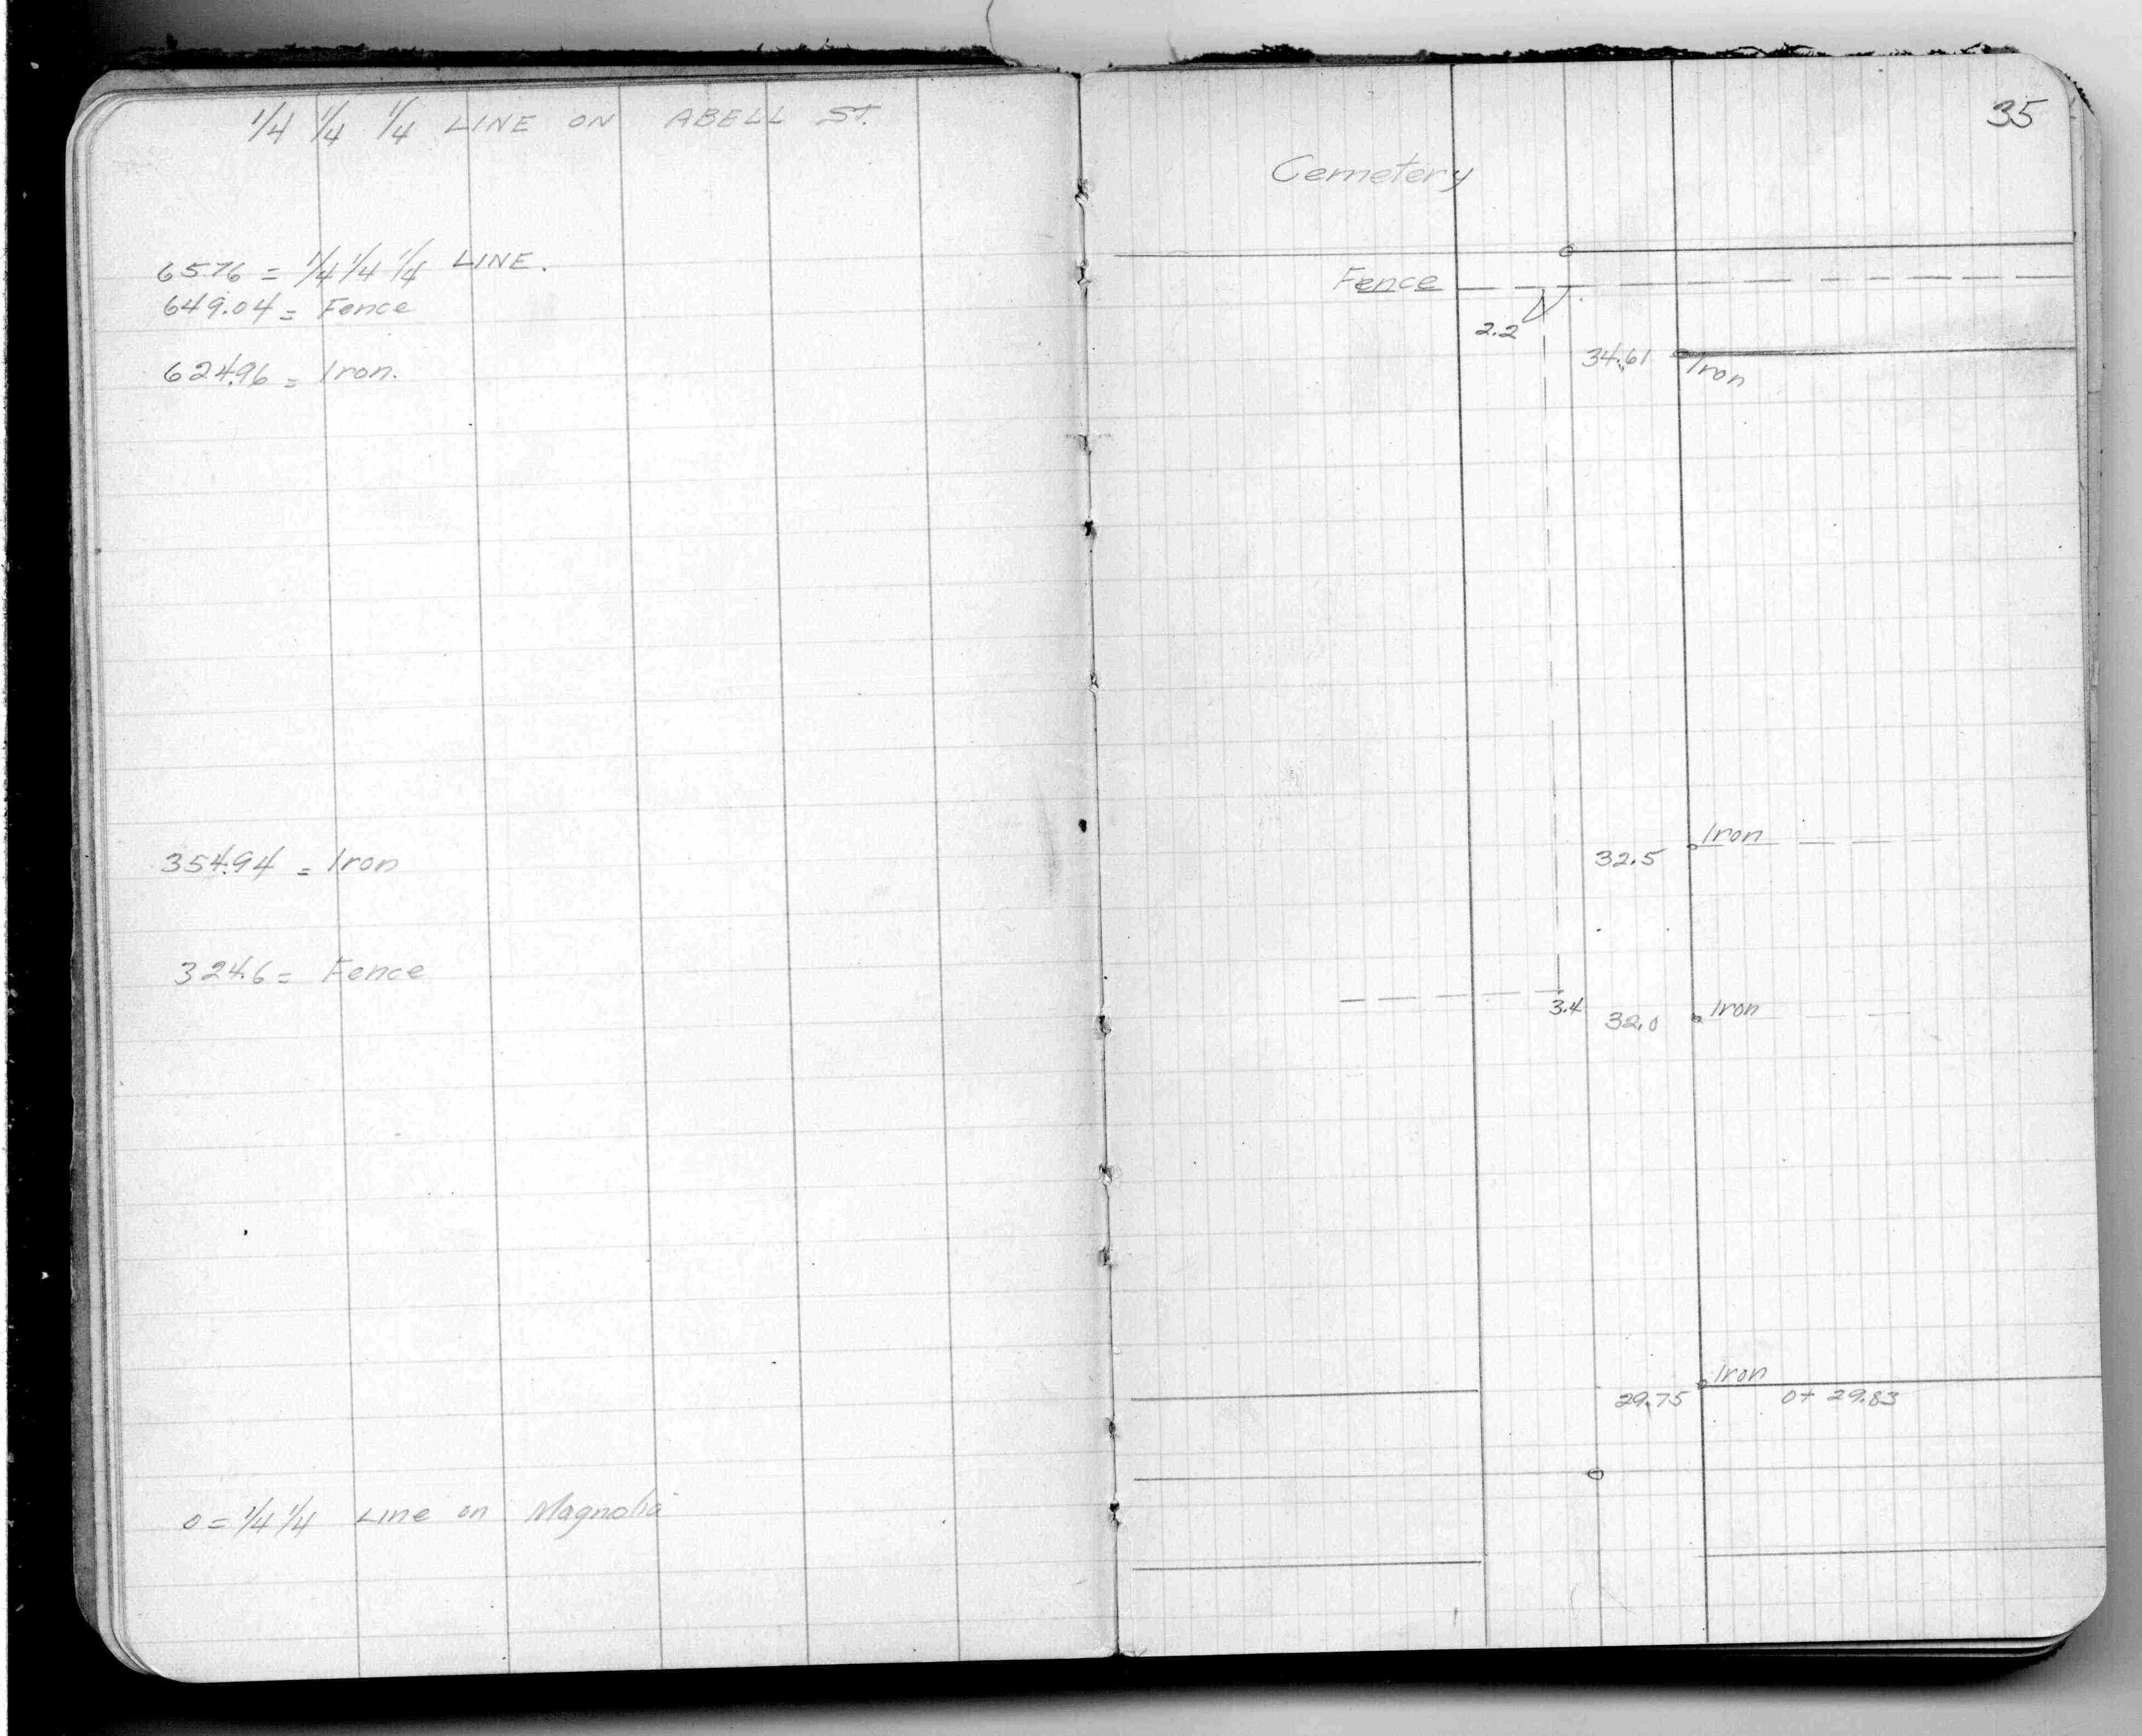 1/4 1/4 1/4 LINE ON ABELL ST.
657.6 = 1/4 1/4 1/4 LINE.
649.04 = Fence
624.96 = Iron.
354.94 = Iron
324.6 = Fence
0 = 1/4 1/4 Line on Magnolia
35
Cemetery
Fence
2.2
34.61 Iron
Iron
32.5
3.4
32.0 Iron
Iron
29.75 0+ 29.83